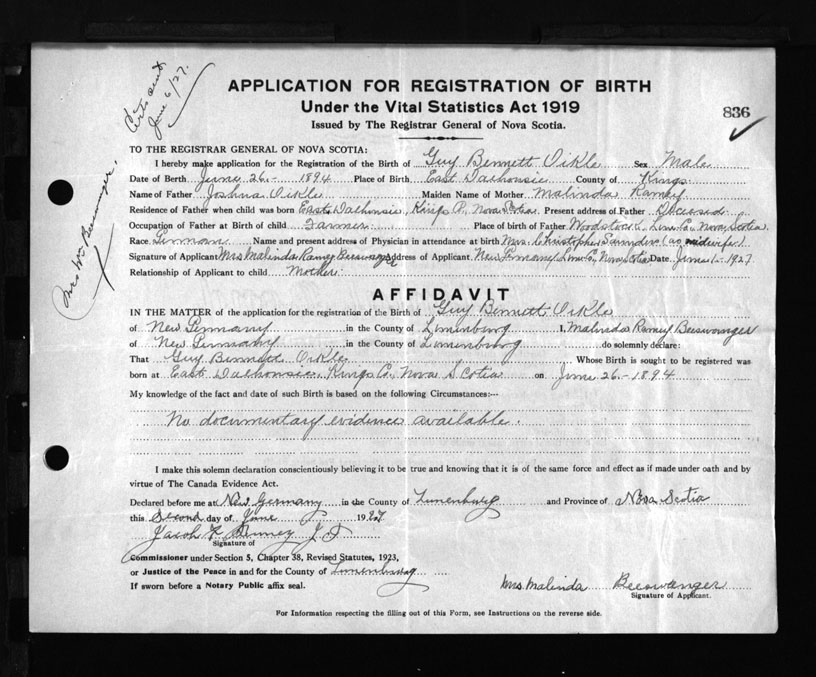 Certs sent
June 6/27.
Mrs Wm Beeswanger.
APPLICATION FOR REGISTRATION OF BIRTH
Under the Vital Statistics Act 1919
836
Issued by The Registrar General of Nova Scotia.
TO THE REGISTRAR GENERAL OF NOVA SCOTIA:
I hereby make application for the Registration of the Birth of Guy Bennett Oikle Sex Male
Date of Birth June 26 - 1894 Place of Birth East Dalhousie County of Kings
Name of Father Joshua Oikle Maiden Name of Mother Malinda Ramey
Residence of Father when child was born East Dalhousie, Kings Co, Nova Scotia Present address of Father Deceased
Occupation of Father at Birth of child Farmer Place of birth of Father Woodstock Lun. Co, Nova Scotia
Race German Name and present address of Physician in attendance at birth Mrs. Christopher Saunders (as midwife).
Signature of Applicant Mrs Malinda Ramey Beeswanger Address of Applicant New Germany, Lun Co, Nova Scotia Date June 1 - 1927
Relationship of Applicant to child Mother
AFFIDAVIT
IN THE MATTER of the application for registration of the Birth of Guy Bennett Oikle
of New Germany in the County of Lunenburg I, Malinda Ramey Beeswanger
of New Germany in the County of Lunenburg do solemnly declare:
That Guy Bennett Oikle Whose Birth is sought to be registered was
born at East Dalhousie, Kings Co, Nova Scotia on June 26 - 1894
My knowledge of the fact and date of such Birth is based on the following Circumstances:—
No documentary evidence available.
I make this solemn declaration conscientiously believing it to be true and knowing that it is of the same force and effect as if made under oath and by
virtue of The Canada Evidence Act.
Declared before me at New Germany in the County of Lunenburg and Province of Nova Scotia
this Second day of June 1927
Jacob F J P
Signature of
Commissioner under Section 5, Chapter 38, Revised Statutes, 1923,
or Justice of the Peace in and for the County of Lunenburg
If sworn before a Notary Public affix seal.
Mrs. Malinda Beeswanger
Signature of Applicant.
For Information respecting the filling out of this Form, see Instructions on the reverse side.